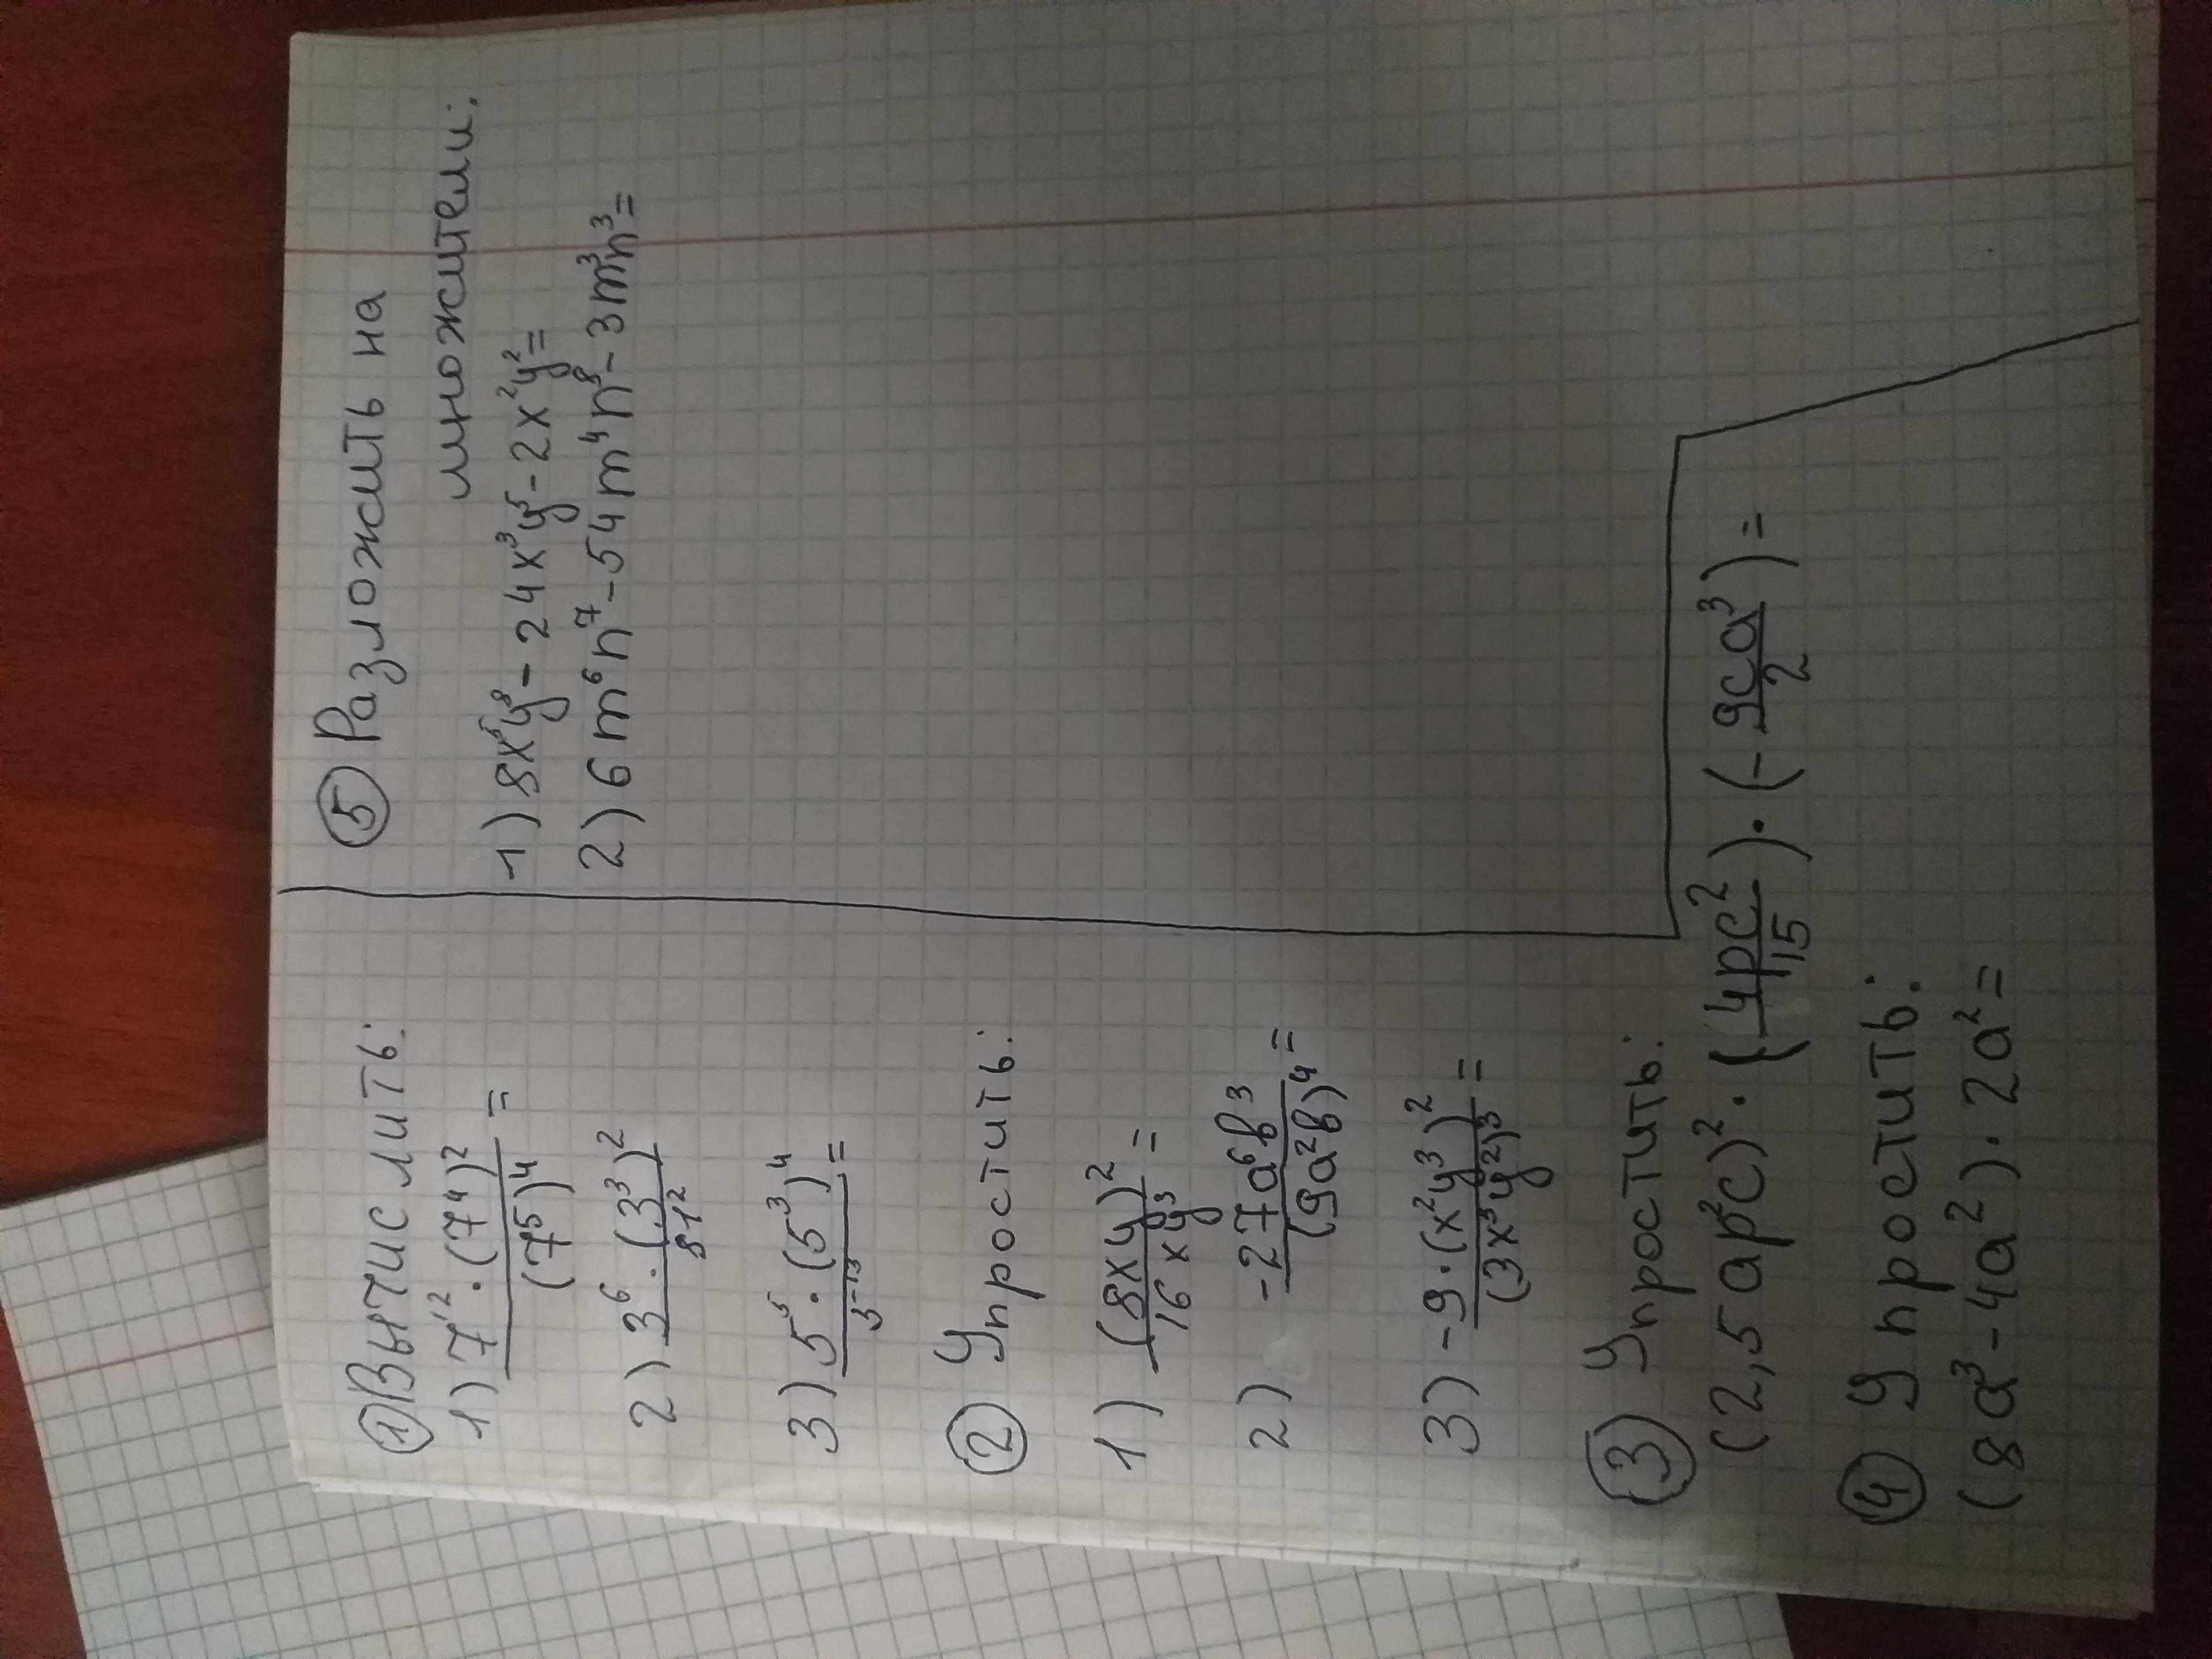 ① Вычислить:
1) 7¹² · (7⁴)² / (7⁵)⁴ =
2) 3⁶ · (3³)² / 81²
3) 5⁵ · (5³)⁴ / 5¹⁵ =
② Упростить:
1) (8xy)² / 16xy³ =
2) -27a⁶b³ / (9a²b)⁴ =
3) -9 · (x²y³)² / (3x³y²)³ =
③ Упростить:
(2,5ap²c)² · (4pc² / 15) · (- 9ca³ / 2) =
④ Упростить:
(8a³ - 4a²) · 2a² =
⑤ Разложить на
множители:
1) 8x⁵y⁸ - 24x³y⁵ - 2x²y² =
2) 6m⁶n⁷ - 54m⁴n⁸ - 3m³n³ =